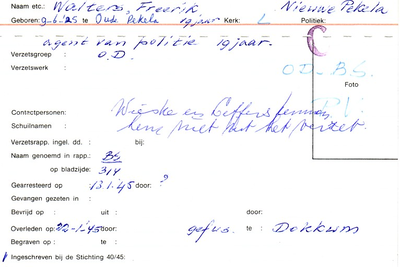 Naam etc.: Walters, Freerik Nieuwe Pekela
Geboren: 9-6-'25 te Oude Pekela 19 jaar Kerk: L Politiek:
agent van politie 19 jaar. C
Verzetsgroep : O.D.
Verzetswerk : O.D.-B.S.
Foto
Contactpersonen: Wieske en Geffers kennen
Schuilnaam : hem niet uit het verzet.
Verzetsrapp. ingel. dd. : bij:
Naam genoemd in rapp.: BS
op bladzijde: 314
Gearresteerd op 13.1.45 door: ?
Gevangen gezeten in :
Bevrijd op : uit : door:
Overleden op: 22-1-45 door: gefus. te Dokkum
Begraven op : te :
Ingeschreven bij de Stichting 40/45: